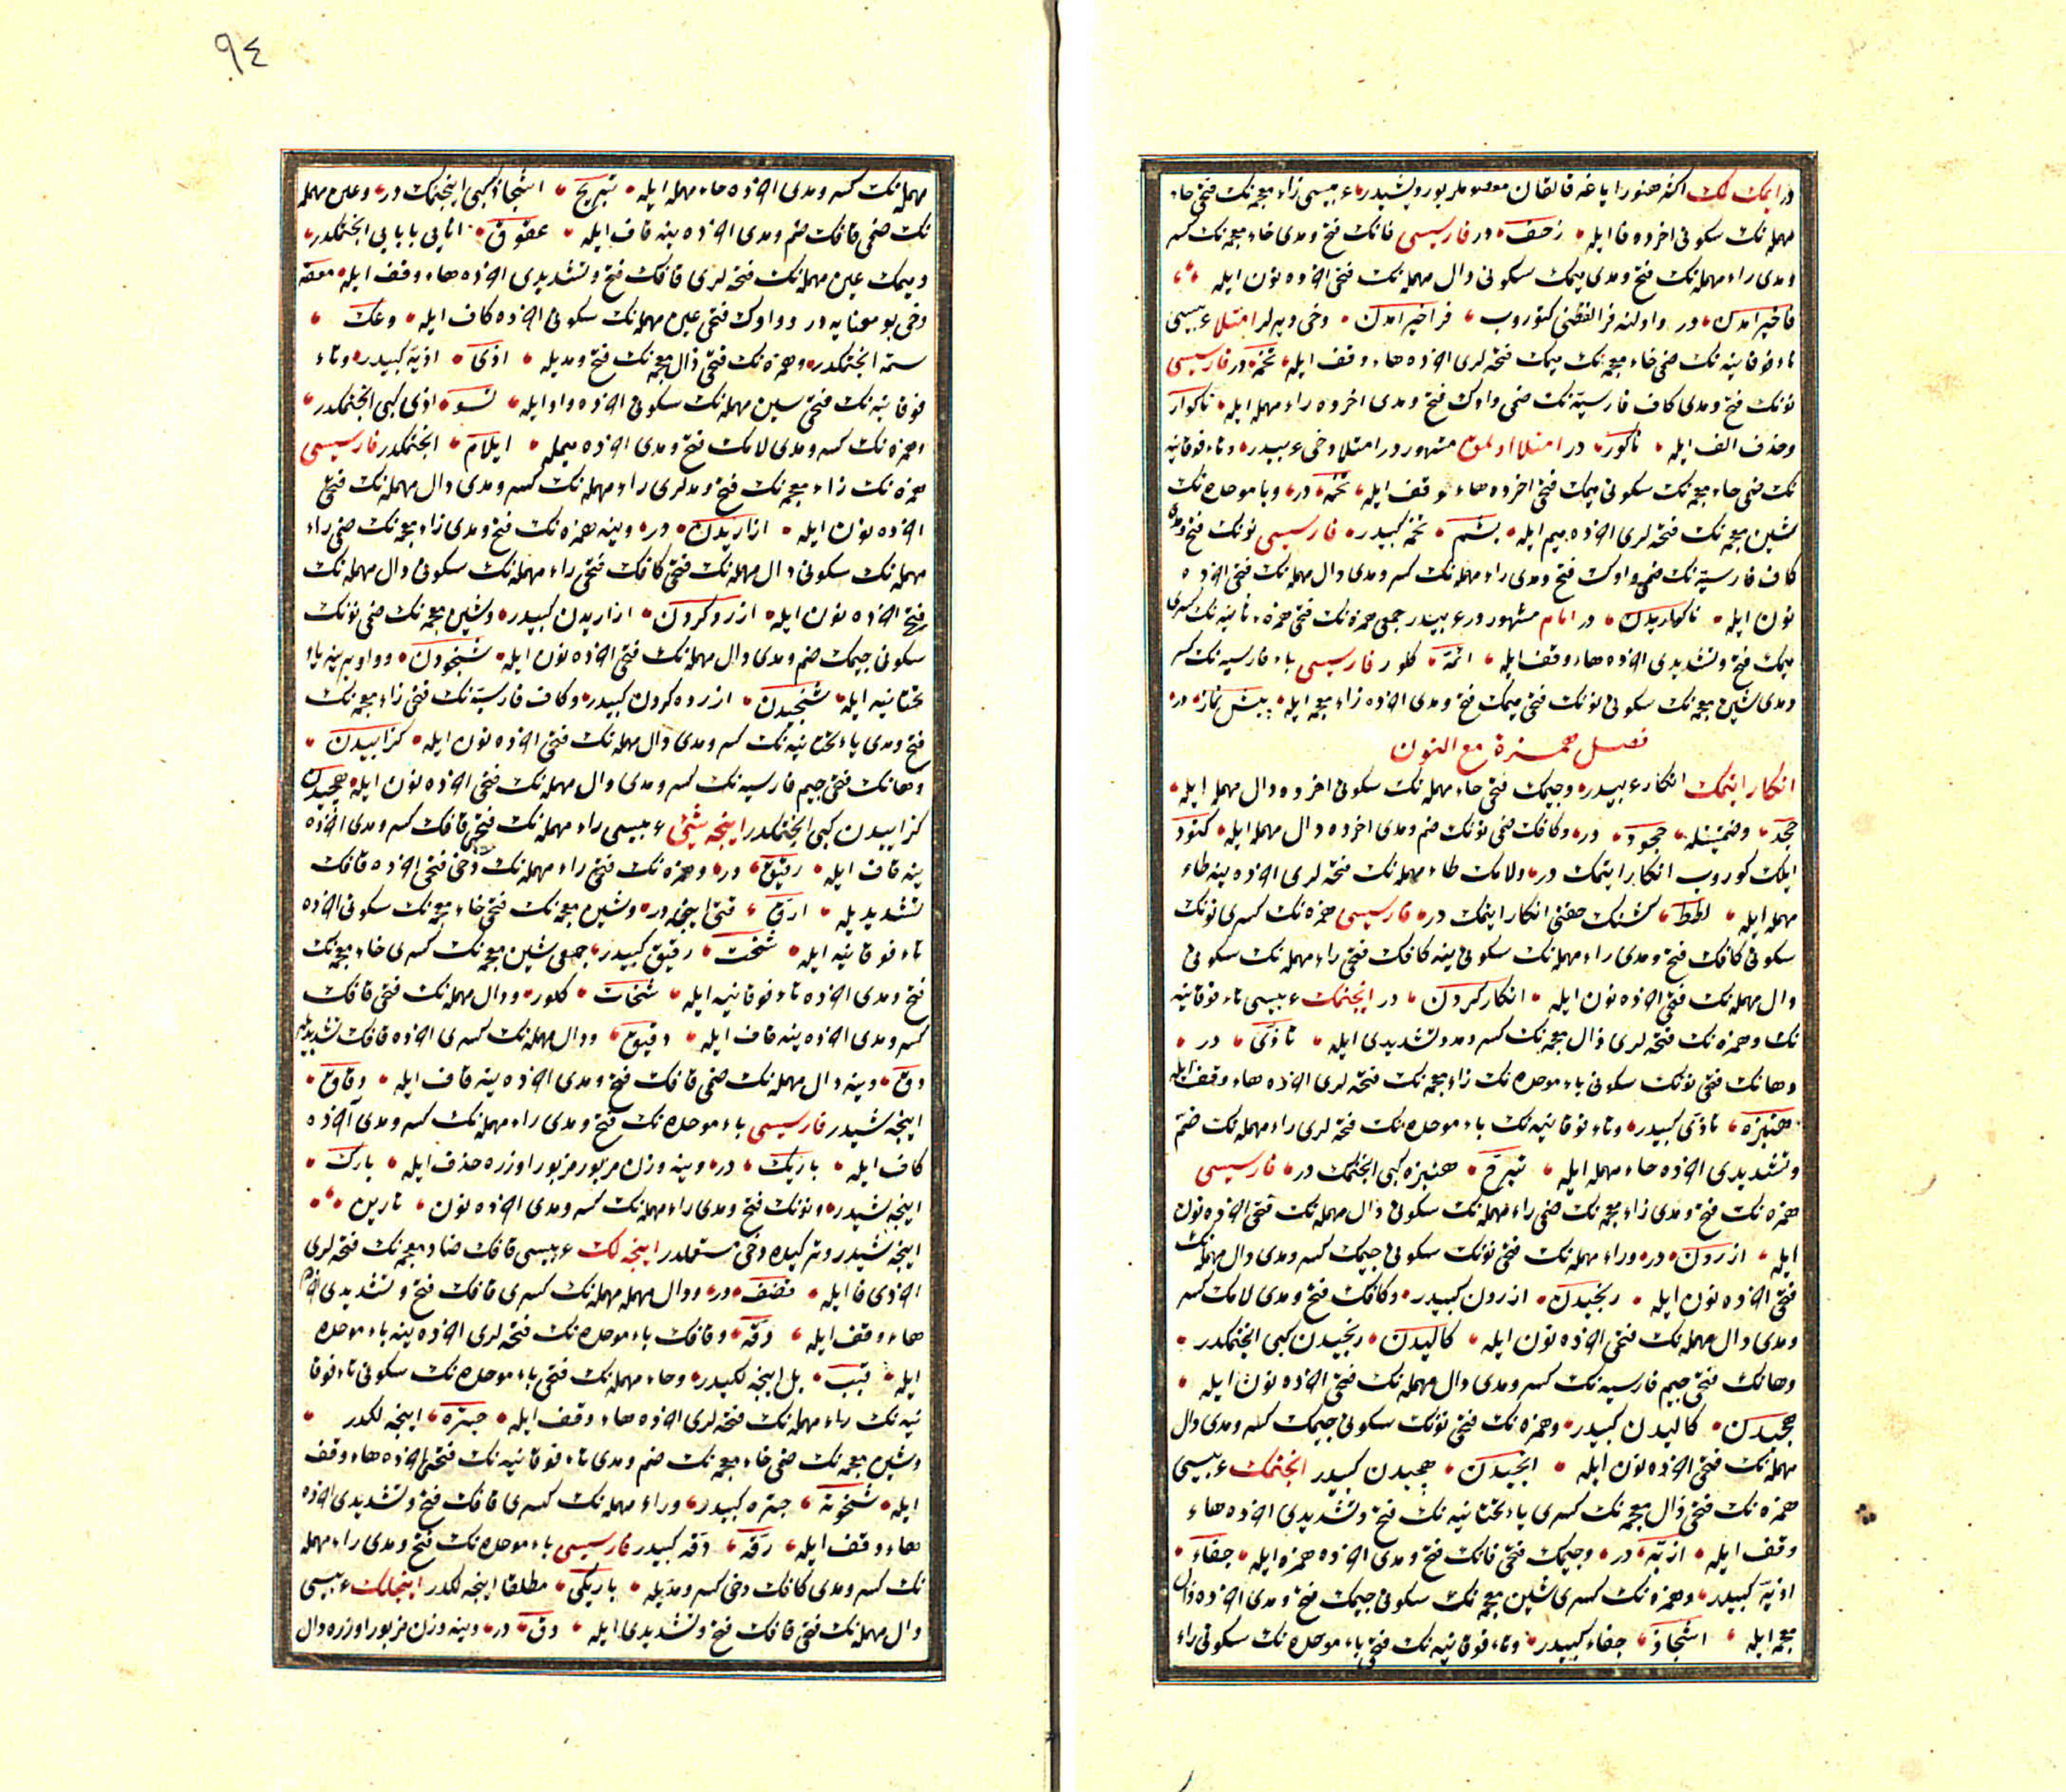 در ایمك لك اکه هنوز ایاغه قالقان معصوملر بورویشیدر عربیسی زاء معجمه‌نك فتحی حاء
مهمله‌نك سکونی اخرده فا ایله زحف در فارسیسی فانك فتح و مدی خاء معجمه‌نك کسر
و مدی راء مهمله‌نك فتح و مدی میمك سکونی دال مهمله‌نك فتحی اخرده نون ایله
فاخیرامدن در و اولنه فرا لفظنی کتوروب فراخیرامدن دخی دیرلر امتلا عربیسی
تاء فوقانیه‌نك ضمی خاء معجمه‌نك میمك فتحه‌لری اخرده هاء وقف ایله تخمه در فارسیسی
نونك فتح و مدی کاف فارسیه‌نك ضمی واوك فتح و مدی اخرده راء مهمله ایله ناکوار
و حذف الف ایله ناکور در امتلا اولمق مشهوردر امتلا دخی عربیدر و تاء فوقانیه
نك ضمی خاء معجمه‌نك سکونی میمك فتحی اخرده هاء وقف ایله تخمه در و با موحده‌نك
شین معجمه‌نك فتحه‌لری اخرده میم ایله بشم تخمه کبیدر فارسیسی نونك فتح و مدی
کاف فارسیه‌نك ضمی واوك فتح و مدی راء مهمله‌نك کسر و مدی دال مهمله‌نك فتحی اخرده
نون ایله ناکواریدن در امام مشهوردر عربیدر جمعی همزه‌نك فتحی همزه ثانیه‌نك کسری
میمك فتح و تشدیدی اخرده هاء وقف ایله ائمة کلور فارسیسی باء فارسیه‌نك کسر
و مدی شین معجمه‌نك سکونی نونك فتحی میمك فتح و مدی اخرده زاء معجمه ایله پیشنماز در
فصل همزة مع النون
انکار ایتمك انکار عربیدر و جیمك فتحی حاء مهمله‌نك سکونی اخرده دال مهمله ایله
جحد و ضمتینله جحود در و کافك ضمی نونك ضم و مدی اخرده دال مهمله ایله کنود
ایلك کوروب انکار ایتمك در و لامك طاء مهمله‌نك فتحه‌لری اخرده ینه طاء
مهمله ایله لطط کشینك حقنی انکار ایتمك در فارسیسی همزه‌نك کسری نونك
سکونی کافك فتح و مدی راء مهمله‌نك سکونی ینه کافك فتحی راء مهمله‌نك سکونی
دال مهمله‌نك فتحی اخرده نون ایله انکار کردن در اینجنمك عربیسی تاء فوقانیه
نك و همزه‌نك فتحه‌لری ذال معجمه‌نك کسر و مد و تشدیدی ایله تاذی در
و هانك فتحی نونك سکونی باء موحده‌نك زاء معجمه‌نك فتحه‌لری اخرده هاء وقف ایله
هنبزه تاذی کبیدر و تاء فوقانیه‌نك باء موحده‌نك فتحه‌لری راء مهمله‌نك ضم
و تشدیدی اخرده حاء مهمله ایله تبرح هنبزه کبی انجنمك در فارسیسی
همزه‌نك فتح و مدی زاء معجمه‌نك ضمی راء مهمله‌نك سکونی دال مهمله‌نك فتحی اخرده نون
ایله ازردن در و راء مهمله‌نك فتحی نونك سکونی جیمك کسر و مدی دال مهمله‌نك
فتحی اخرده نون ایله رنجیدن ازردن کبیدر و کافك فتح و مدی لامك کسر
و مدی دال مهمله‌نك فتحی اخرده نون ایله کالیدن رنجیدن کبی انجنمکدر
و هانك فتحی جیم فارسیه‌نك کسر و مدی دال مهمله‌نك فتحی اخرده نون ایله
هچیدن کالیدن کبیدر و همزه‌نك فتحی نونك سکونی جیمك کسر و مدی دال
مهمله‌نك فتحی اخرده نون ایله انجیدن هچیدن کبیدر انجنمك عربیسی
همزه‌نك فتحی ذال معجمه‌نك کسری یاء تحتانیه‌نك فتح و تشدیدی اخرده هاء
وقف ایله اذیة در و جیمك فتحی فانك فتح و مدی اخرده همزه ایله جفاء
اذیة کبیدر و همزه‌نك کسری شین معجمه‌نك سکونی جیمك فتح و مدی اخرده ذال
معجمه ایله اشجاذ جفاء کبیدر و تاء فوقانیه‌نك فتحی باء موحده‌نك سکونی راء
٩٤
مهمله‌نك کسر و مدی اخرده حاء مهمله ایله تبریح اشجاذ کبی اینجتمك در و عین مهمله
نك ضمی قافك ضم و مدی اخرده ینه قاف ایله عقوق انایی بابایی انجتمکدر
و میمك عین مهمله‌نك فتحه‌لری قافك فتح و تشدیدی اخرده هاء وقف ایله معقة
دخی بو معنایه در و واوك فتحی عین مهمله‌نك سکونی اخرده کاف ایله وعك
ستمه انجتمکدر و همزه‌نك فتحی ذال معجمه‌نك فتح و مدیله اذی اذیة کبیدر و تاء
فوقانیه‌نك فتحی سین مهمله‌نك سکونی اخرده واو ایله تسو اذی کبی انجتمکدر
و همزه‌نك کسر و مدی لامك فتح و مدی اخرده میمله ایلام انجتمکدر فارسیسی
همزه‌نك زاء معجمه‌نك فتح و مدلری راء مهمله‌نك کسر و مدی دال مهمله‌نك فتحی
اخرده نون ایله ازاریدن در و ینه همزه‌نك فتح و مدی زاء معجمه‌نك ضمی راء
مهمله‌نك سکونی دال مهمله‌نك فتحی کافك فتحی راء مهمله‌نك سکونی دال مهمله‌نك
فتحی اخرده نون ایله ازرد کردن ازاریدن کبیدر و شین معجمه‌نك ضمی نونك
سکونی جیمك ضم و مدی دال مهمله‌نك فتحی اخرده نون ایله شنجودن و واو یرینه یاء
تحتانیه ایله شنجیدن ازرده کردن کبیدر و کاف فارسیه‌نك فتحی زاء معجمه‌نك
فتح و مدی یاء تحتانیه‌نك کسر و مدی دال مهمله‌نك فتحی اخرده نون ایله کزاییدن
و هانك فتحی جیم فارسیه‌نك کسر و مدی دال مهمله‌نك فتحی اخرده نون ایله هچیدن
کزاییدن کبی انجتمکدر اینجه شئ عربیسی راء مهمله‌نك فتحی قافك کسر و مدی اخرده
ینه قاف ایله رقیق در و همزه‌نك فتحی راء مهمله‌نك دخی فتحی اخرده قافك
تشدیدیله ارق قتی اینجه در و شین معجمه‌نك فتحی خاء معجمه‌نك سکونی اخرده
تاء فوقانیه ایله شخت رقیق کبیدر جمعی شین معجمه‌نك کسری خاء معجمه‌نك
فتح و مدی اخرده تاء فوقانیه ایله شخات کلور و دال مهمله‌نك فتحی قافك
کسر و مدی اخرده ینه قاف ایله دقیق و دال مهمله‌نك کسری اخرده قافك تشدیدیله
دق و ینه دال مهمله‌نك ضمی قافك فتح و مدی اخرده ینه قاف ایله دقاق
اینجه شیدر فارسیسی باء موحده‌نك فتح و مدی راء مهمله‌نك کسر و مدی اخرده
کاف ایله باریك در و ینه وزن مزبور مزبور اوزره حذف ایله بارك
اینجه شیدر و نونك فتح و مدی راء مهمله‌نك کسر و مدی اخرده نون نارین
اینجه شیدر و ترکیده دخی مستعملدر اینجه لك عربیسی قافك ضاد معجمه‌نك فتحه‌لری
اخرده فا ایله قضف در و دال مهمله‌نك کسری قافك فتح و تشدیدی اخرده
هاء وقف ایله دقة و قافك باء موحده‌نك فتحه‌لری اخرده ینه باء موحده
ایله قبب بل اینجه لکیدر و حاء مهمله‌نك فتحی باء موحده‌نك سکونی تاء فوقا
نیه‌نك راء مهمله‌نك فتحه‌لری اخرده هاء وقف ایله حبترة اینجه لکدر
و شین معجمه‌نك ضمی خاء معجمه‌نك ضم و مدی تاء فوقانیه‌نك فتحی اخرده هاء وقف
ایله شخوتة حبتره کبیدر و راء مهمله‌نك کسری قافك فتح و تشدیدی اخرده
هاء وقف ایله رقة دقة کبیدر فارسیسی باء موحده‌نك فتح و مدی راء مهمله
نك کسر و مدی کافك دخی کسر و مدیله باریکی مطلقا اینجه لکدر اینجلك عربیسی
دال مهمله‌نك فتحی قافك فتح و تشدیدی ایله دق در و ینه وزن مزبور اوزره دال